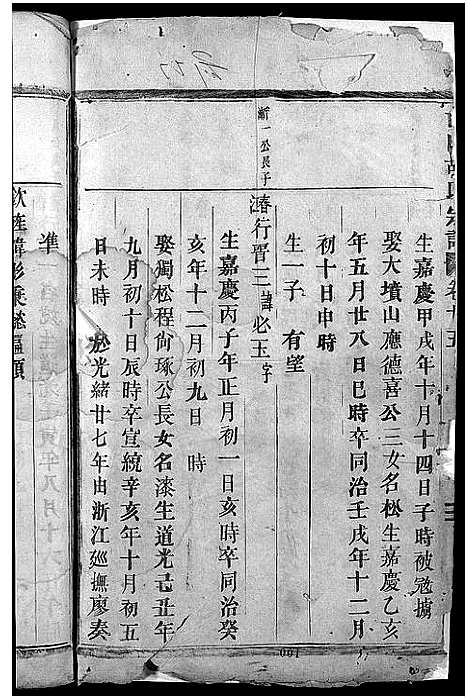 氏宗譜 卷十五
生嘉慶甲戌年十月十四日子時被寇擄
娶大墳山應德喜公三女名松生嘉慶乙亥
年五月廿八日巳時卒同治壬戌年十二月
初十日申時
生一子 有望
漸一公長子 濤行晋三諱必玉字
生嘉慶丙子年正月初一日亥時卒同治癸
亥年十二月初九日 時
娶獨松程尚琢公長女名漆生道光己丑年
九月初十日辰時卒宣統辛亥年十月初五
日未時 於光緒廿七年由浙江廵撫廖奏
準
欽旌